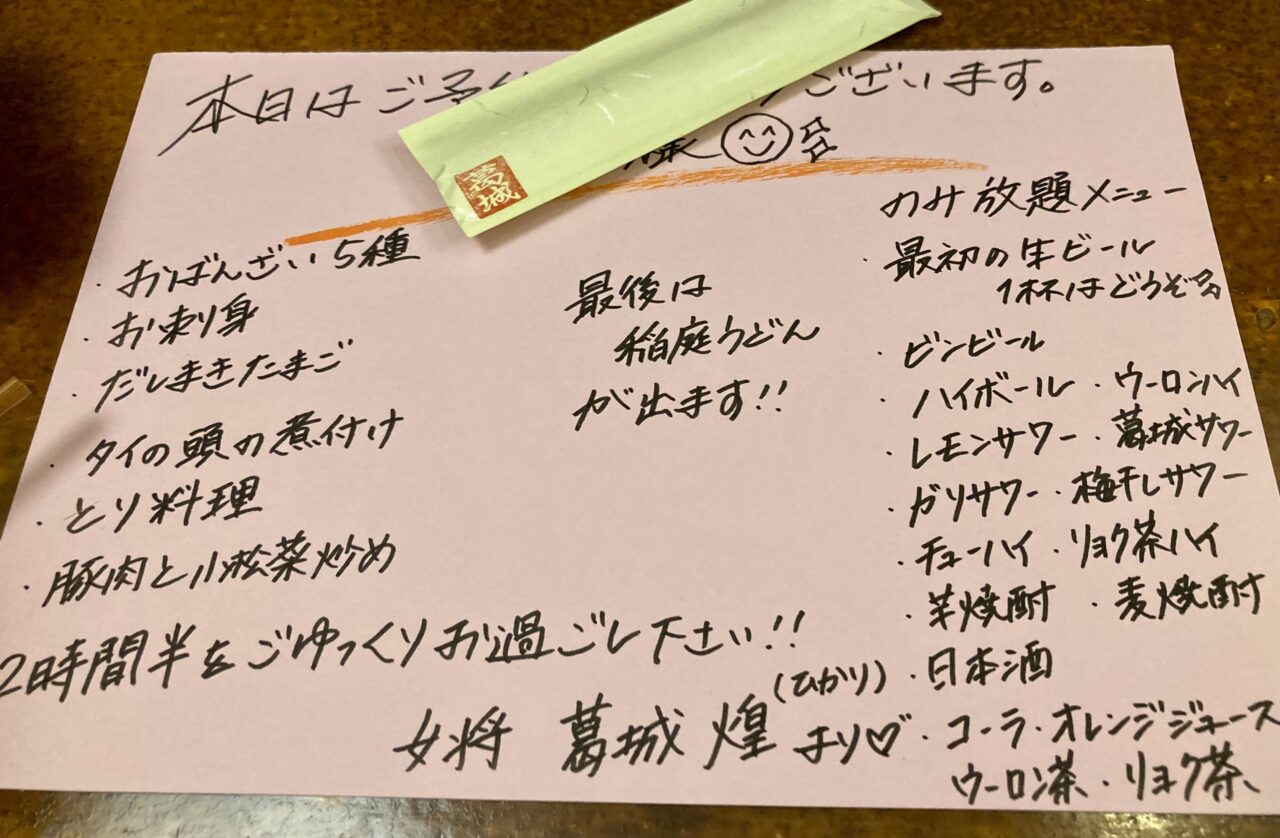 本日はご予約ございます。
様
葛城
おばんざい5種
・お刺り身
・だしまきたまご
・タイの頭の煮付け
・とり料理
・豚肉と小松菜炒め
最後は
稲庭うどん
が出ます!!
のみ放題メニュー
・最初の生ビール
1杯はどうぞ
・ビンビール
・ハイボール・ウーロンハイ
・レモンサワー・葛城サワー
・ガリサワー・梅干しサワー
・チューハイ・リョク茶ハイ
・芋焼酎・麦焼酎
・日本酒
・コーラ・オレンジジュース
ウーロン茶・リョク茶
2時間半をごゆっくりお過ごし下さい!!
女将 葛城 煌(ひかり)より♡